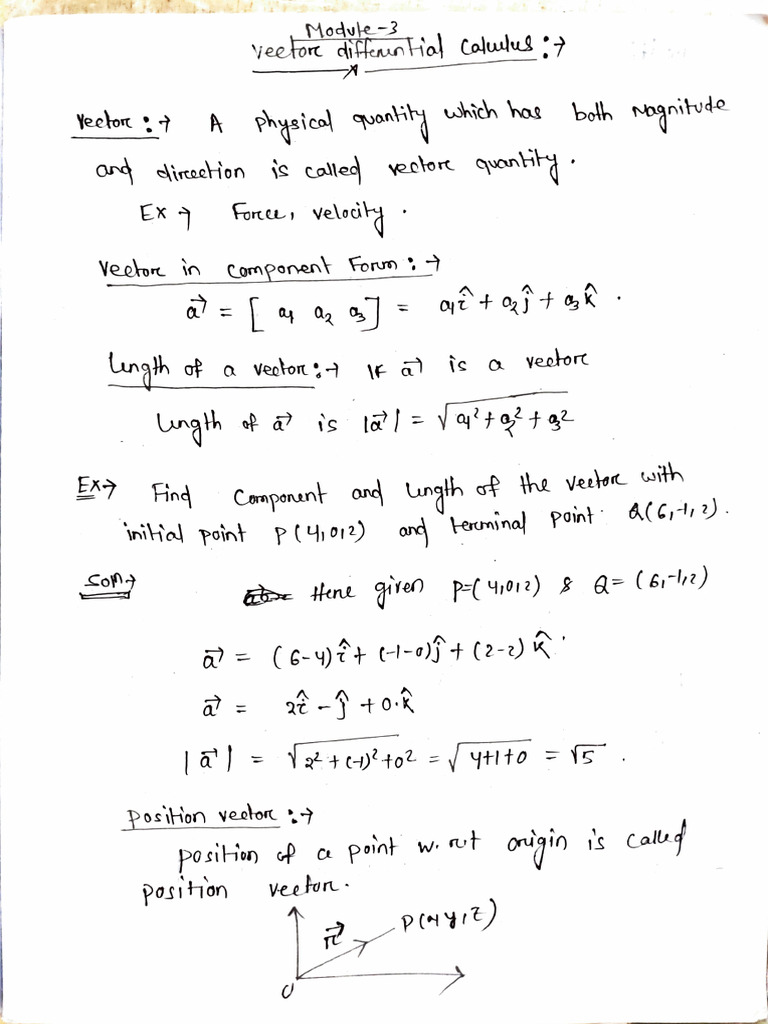 Module-3
Vector differential Calculus :→
Vector :→ A physical quantity which has both Magnitude
and direction is called vector quantity.
Ex → Force, velocity.
Vector in component Form :→
a⃗ = [ a₁ a₂ a₃ ] = a₁î + a₂ĵ + a₃k̂ .
Length of a vector :→ If a⃗ is a vector
Length of a⃗ is |a⃗| = √(a₁² + a₂² + a₃²)
Ex → Find Component and Length of the vector with
initial point P(4,0,2) and terminal point Q(6,-1,2).
Soln →
Here given P=(4,0,2) & Q = (6,-1,2)
a⃗ = (6-4)î + (-1-0)ĵ + (2-2) k̂ .
a⃗ = 2î - ĵ + 0.k̂
|a⃗| = √(2² + (-1)² + 0²) = √(4+1+0) = √5 .
Position vector :→
position of a point w.r.t origin is called
position vector.
r⃗ P(x,y,z)
O